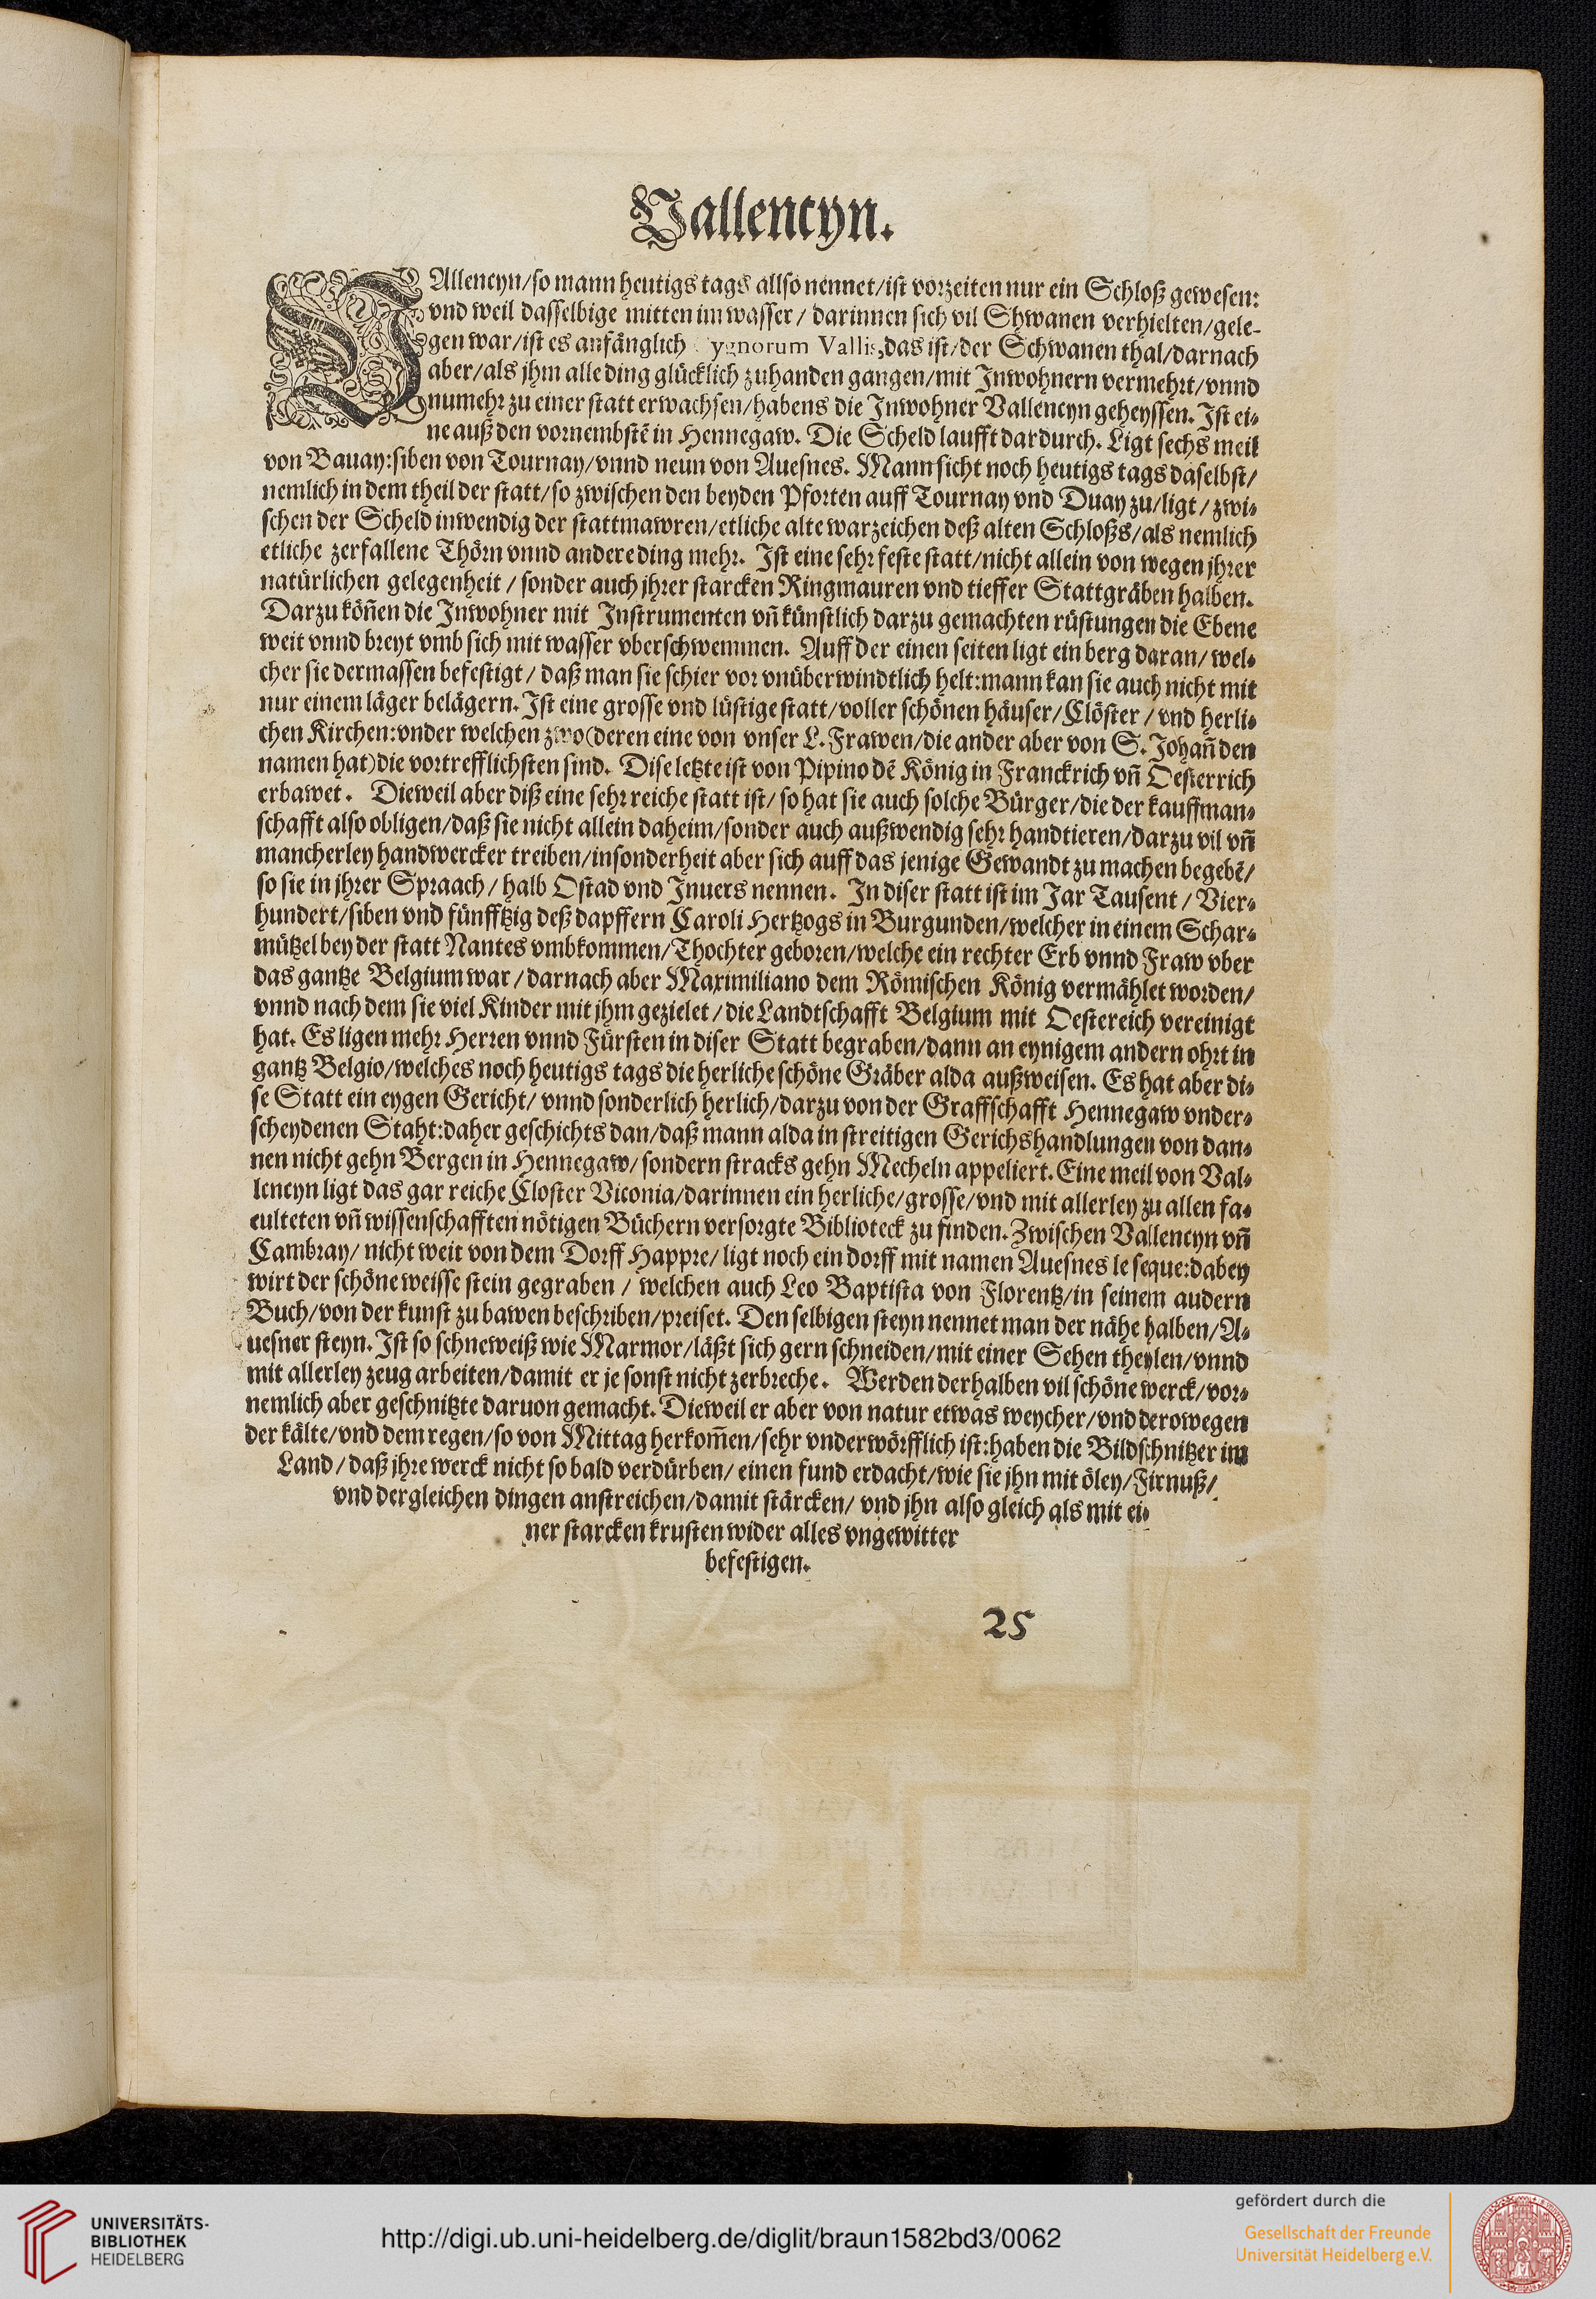 Vallencyn.
VAllencyn/so mann heutigs tags allso nennet/ist vorzeiten nur ein Schloß gewesen:
vnd weil dasselbige mitten im wasser/ darinnen sich vil Shwanen verhielten/gele-
gen war/ist es anfänglich ygnorum Vallis,das ist/der Schwanen thal/darnach
aber/als jhm alle ding glücklich zuhanden gangen/mit Inwohnern vermehrt/vnnd
numehr zu einer statt erwachsen/habens die Inwohner Vallencyn geheyssen. Ist ei-
ne auß den vornembstē in Hennegaw. Die Scheld laufft dardurch. Ligt sechs meil
von Bauay:siben von Tournay/vnnd neun von Auesnes. Mann sicht noch heutigs tags daselbst/
nemlich in dem theil der statt/so zwischen den beyden Pforten auff Tournay vnd Duay zu/ligt/zwi-
schen der Scheld inwendig der stattmawren/etliche alte warzeichen deß alten Schloßs/als nemlich
etliche zerfallene Thörn vnnd andere ding mehr. Ist eine sehr feste statt/nicht allein von wegen jhrer
natürlichen gelegenheit/sonder auch jhrer starcken Ringmauren vnd tieffer Stattgräben halben.
Darzu köñen die Inwohner mit Instrumenten vñ künstlich darzu gemachten rüstungen die Ebene
weit vnnd breyt vmb sich mit wasser vberschwemmen. Auff der einen seiten ligt ein berg daran/wel-
cher sie dermassen befestigt/daß man sie schier vor vnüberwindtlich helt:mann kan sie auch nicht mit
nur einem läger belägern. Ist eine grosse vnd lüstige statt/voller schönen häuser/Clöster/vnd herli-
chen Kirchen:vnder welchen zwo(deren eine von vnser L. Frawen/die ander aber von S. Johañ den
namen hat)die vortrefflichsten sind. Dise letzte ist von Pipino dē König in Franckrich vñ Oesterrich
erbawet. Dieweil aber diß eine sehr reiche statt ist/so hat sie auch solche Bürger/die der kauffman-
schafft also obligen/daß sie nicht allein daheim/sonder auch außwendig sehr handtieren/darzu vil vñ
mancherley handwercker treiben/insonderheit aber sich auff das jenige Gewandt zu machen begebē/
so sie in jhrer Spraach/halb Ostad vnd Inuers nennen. In diser statt ist im Jar Tausent/Vier-
hundert/siben vnd fünfftzig deß dapffern Caroli Hertzogs in Burgunden/welcher in einem Schar-
mützel bey der statt Nantes vmbkommen/Thochter geboren/welche ein rechter Erb vnnd Fraw vber
das gantze Belgium war/darnach aber Maximiliano dem Römischen König vermählet worden/
vnnd nach dem sie viel Kinder mit jhm gezielet/die Landtschafft Belgium mit Oestereich vereinigt
hat. Es ligen mehr Herren vnnd Fürsten in diser Statt begraben/dann an eynigem andern ohrt in
gantz Belgio/welches noch heutigs tags die herliche schöne Gräber alda außweisen. Es hat aber di-
se Statt ein eygen Gericht/ vnnd sonderlich herlich/darzu von der Graffschafft Hennegaw vnder-
scheydenen Staht:daher geschichts dan/daß mann alda in streitigen Gerichshandlungen von dan-
nen nicht gehn Bergen in Hennegaw/sondern stracks gehn Mecheln appeliert. Eine meil von Val-
lencyn ligt das gar reiche Closter Viconia/darinnen ein herliche/grosse/vnd mit allerley zu allen fa-
culteten vñ wissenschafften nötigen Büchern versorgte Biblioteck zu finden. Zwischen Vallencyn vñ
Cambray/ nicht weit von dem Dorff Happre/ligt noch ein dorff mit namen Auesnes le seque:dabey
wirt der schöne weisse stein gegraben/ welchen auch Leo Baptista von Florentz/in seinem andern
Buch/von der kunst zu bawen beschriben/preiset. Den selbigen steyn nennet man der nähe halben/A-
uesner steyn. Ist so schneweiß wie Marmor/läßt sich gern schneiden/mit einer Sehen theylen/vnnd
mit allerley zeug arbeiten/damit er je sonst nicht zerbreche. Werden derhalben vil schöne werck/vor-
nemlich aber geschnitzte daruon gemacht. Dieweil er aber von natur etwas weycher/vnd derowegen
der kälte/vnd dem regen/so von Mittag herkom̄en/sehr vnderwörfflich ist:haben die Bildschnitzer im
Land/daß jhre werck nicht so bald verdürben/ einen fund erdacht/wie sie jhn mit öley/Firnuß/
vnd dergleichen dingen anstreichen/damit stärcken/ vnd jhn also gleich als mit ei-
ner starcken krusten wider alles vngewitter
befestigen.
25
UNIVERSITÄTS-
BIBLIOTHEK
HEIDELBERG
http://digi.ub.uni-heidelberg.de/diglit/braun1582bd3/0062
gefördert durch die
Gesellschaft der Freunde
Universität Heidelberg e.V.